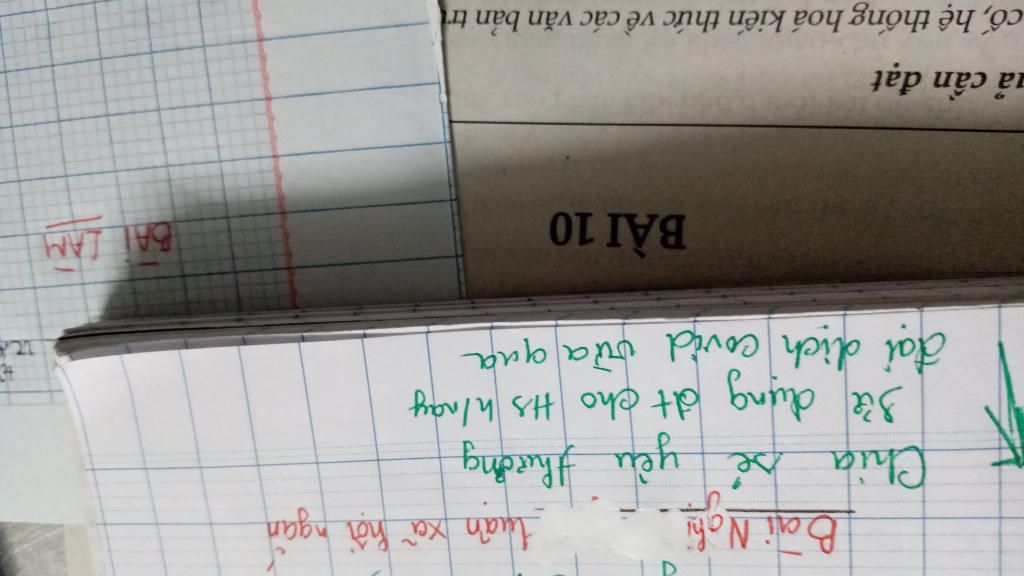 Bài Nghị luận xã hội ngắn
Chia sẻ yêu thương
Sử dụng đt cho HS h/nay
đại dịch covid vừa qua
BÀI LÀM
BÀI 10
ả cần đạt
cố, hệ thống hoá kiến thức về các văn bản tr